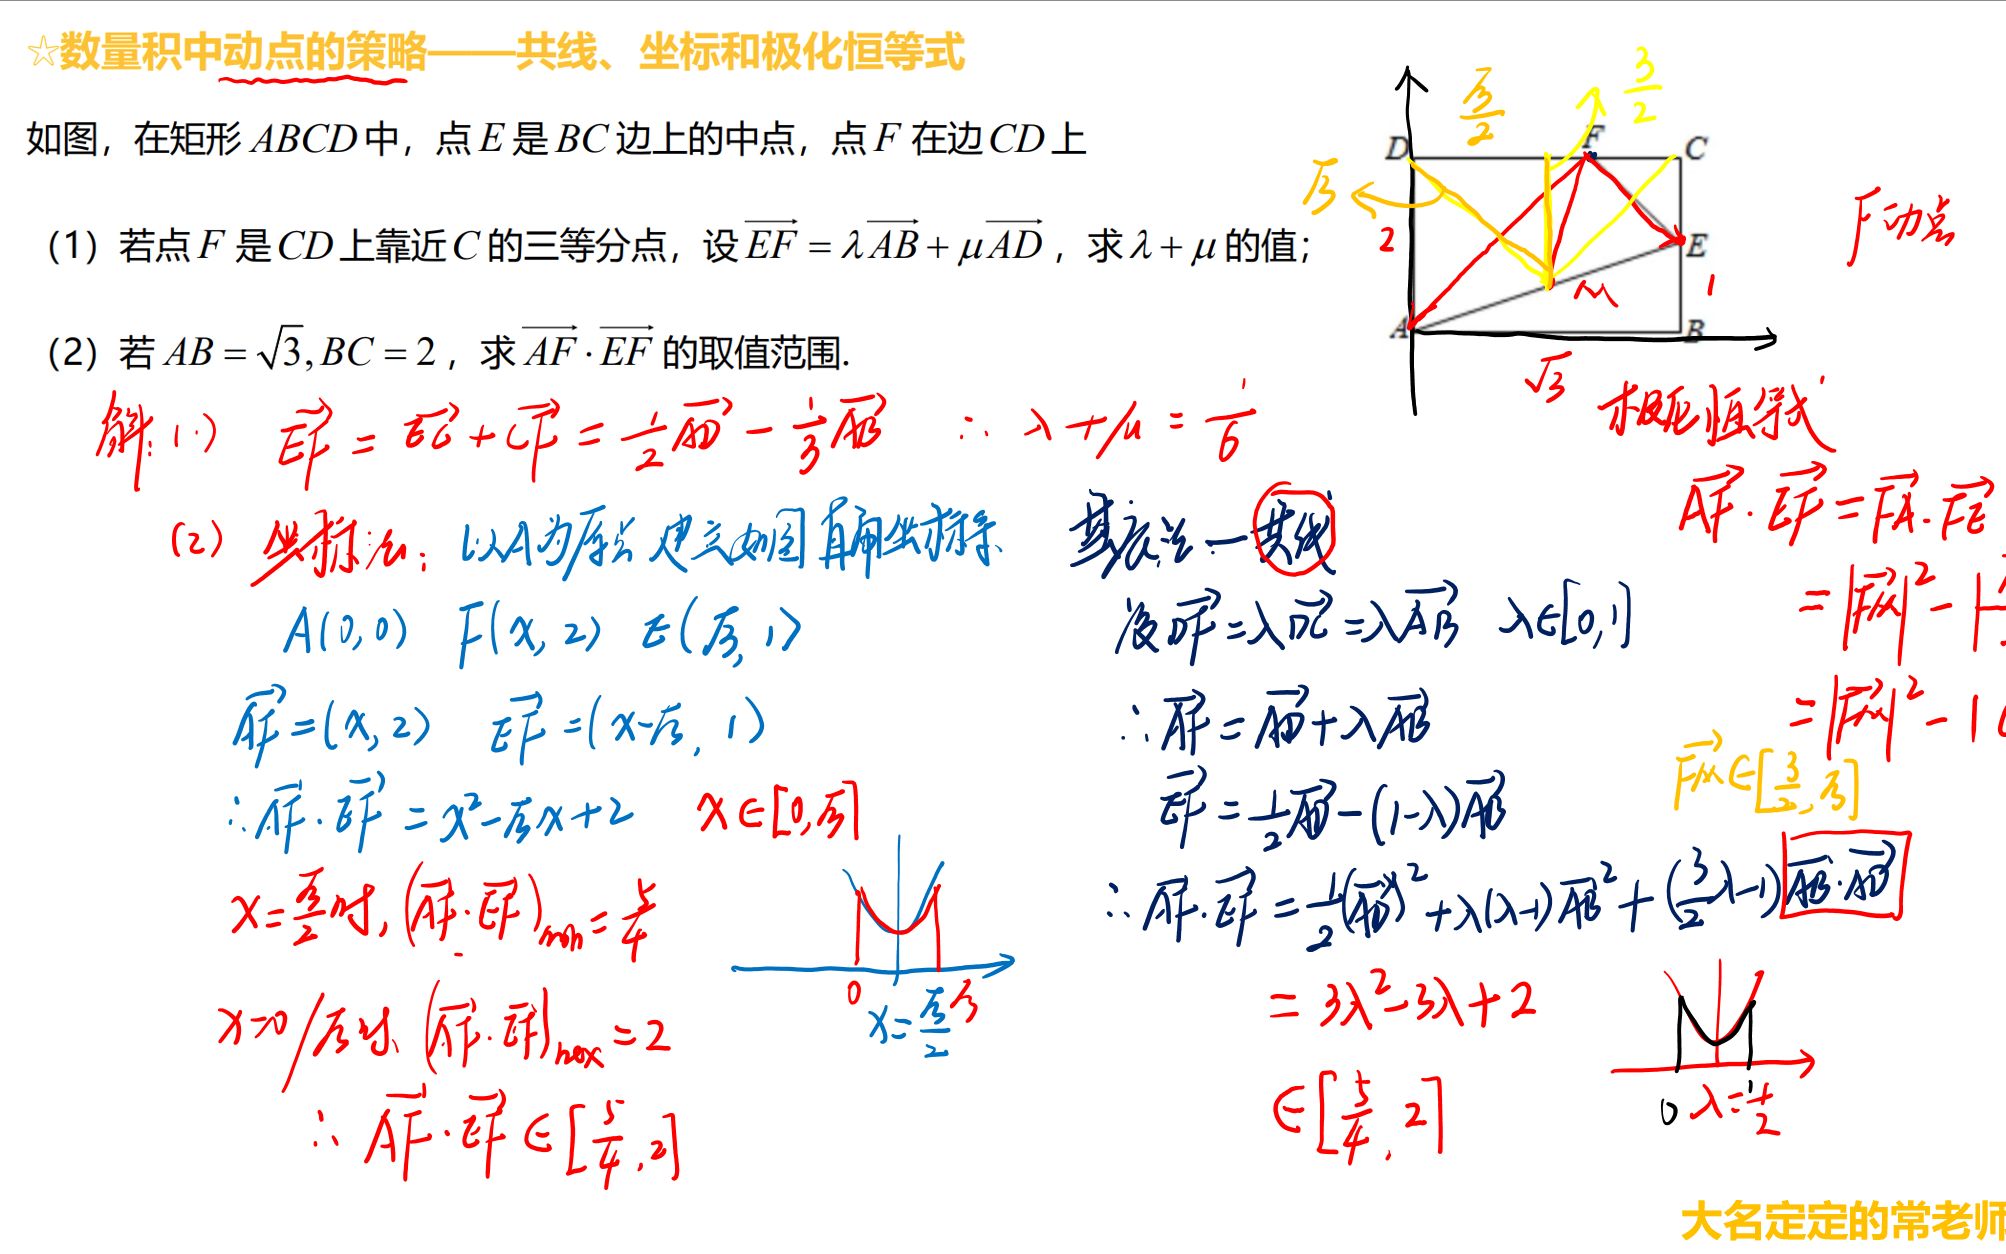 ☆数量积中动点的策略——共线、坐标和极化恒等式
如图，在矩形ABCD中，点E是BC边上的中点，点F在边CD上
（1）若点F是CD上靠近C的三等分点，设$\overrightarrow{EF}=\lambda\overrightarrow{AB}+\mu\overrightarrow{AD}$，求λ+μ的值；
（2）若AB=√3,BC=2，求$\overrightarrow{AF}\cdot\overrightarrow{EF}$的取值范围.
D F C
√3/2
3/2
√3
2
E
1
M
A B
√3
F动点
解:(1) $\overrightarrow{EF}=\overrightarrow{EC}+\overrightarrow{CF}=\frac{1}{2}\overrightarrow{AD}-\frac{1}{3}\overrightarrow{AB}$ ∴ λ+μ=1/6
(2) 坐标法: 以A为原点建立如图直角坐标系
A(0,0) F(x,2) E(√3,1)
$\overrightarrow{AF}=(x,2)$ $\overrightarrow{EF}=(x-\sqrt{3},1)$
∴$\overrightarrow{AF}\cdot\overrightarrow{EF}=x^2-\sqrt{3}x+2$ x∈[0,√3]
x=√3/2时, $(\overrightarrow{AF}\cdot\overrightarrow{EF})_{min}=\frac{5}{4}$
x=0/√3时 $(\overrightarrow{AF}\cdot\overrightarrow{EF})_{max}=2$
∴ $\overrightarrow{AF}\cdot\overrightarrow{EF}\in[\frac{5}{4},2]$
0 √3
x=√3/2
基底法—共线
设$\overrightarrow{DF}=\lambda\overrightarrow{DC}=\lambda\overrightarrow{AB}$ λ∈[0,1]
∴$\overrightarrow{AF}=\overrightarrow{AD}+\lambda\overrightarrow{AB}$
$\overrightarrow{EF}=\frac{1}{2}\overrightarrow{AD}-(1-\lambda)\overrightarrow{AB}$
∴$\overrightarrow{AF}\cdot\overrightarrow{EF}=\frac{1}{2}(\overrightarrow{AD})^2+\lambda(\lambda-1)\overrightarrow{AB}^2+(\frac{3}{2}\lambda-1)\overrightarrow{AB}\cdot\overrightarrow{AD}$
=3λ²-3λ+2
∈[5/4,2]
0 λ=1/2
1
极化恒等式
$\overrightarrow{AF}\cdot\overrightarrow{EF}=\overrightarrow{FA}\cdot\overrightarrow{FE}$
=$|\overrightarrow{FM}|^2-|$
=$|\overrightarrow{FM}|^2-1$
$\overrightarrow{FM}\in[\frac{3}{2},\sqrt{3}]$
大名定定的常老师